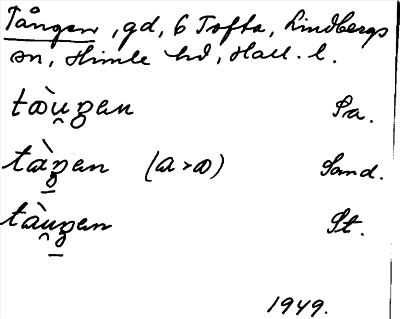 Tången, gd, 6 Tofta, Lindbergs
sn, Himle hd, Hall. l.
tɷ̀u̯ŋen Sa.
tàŋen (a > ɷ) Sand.
tàu̯ŋen St.
1949.